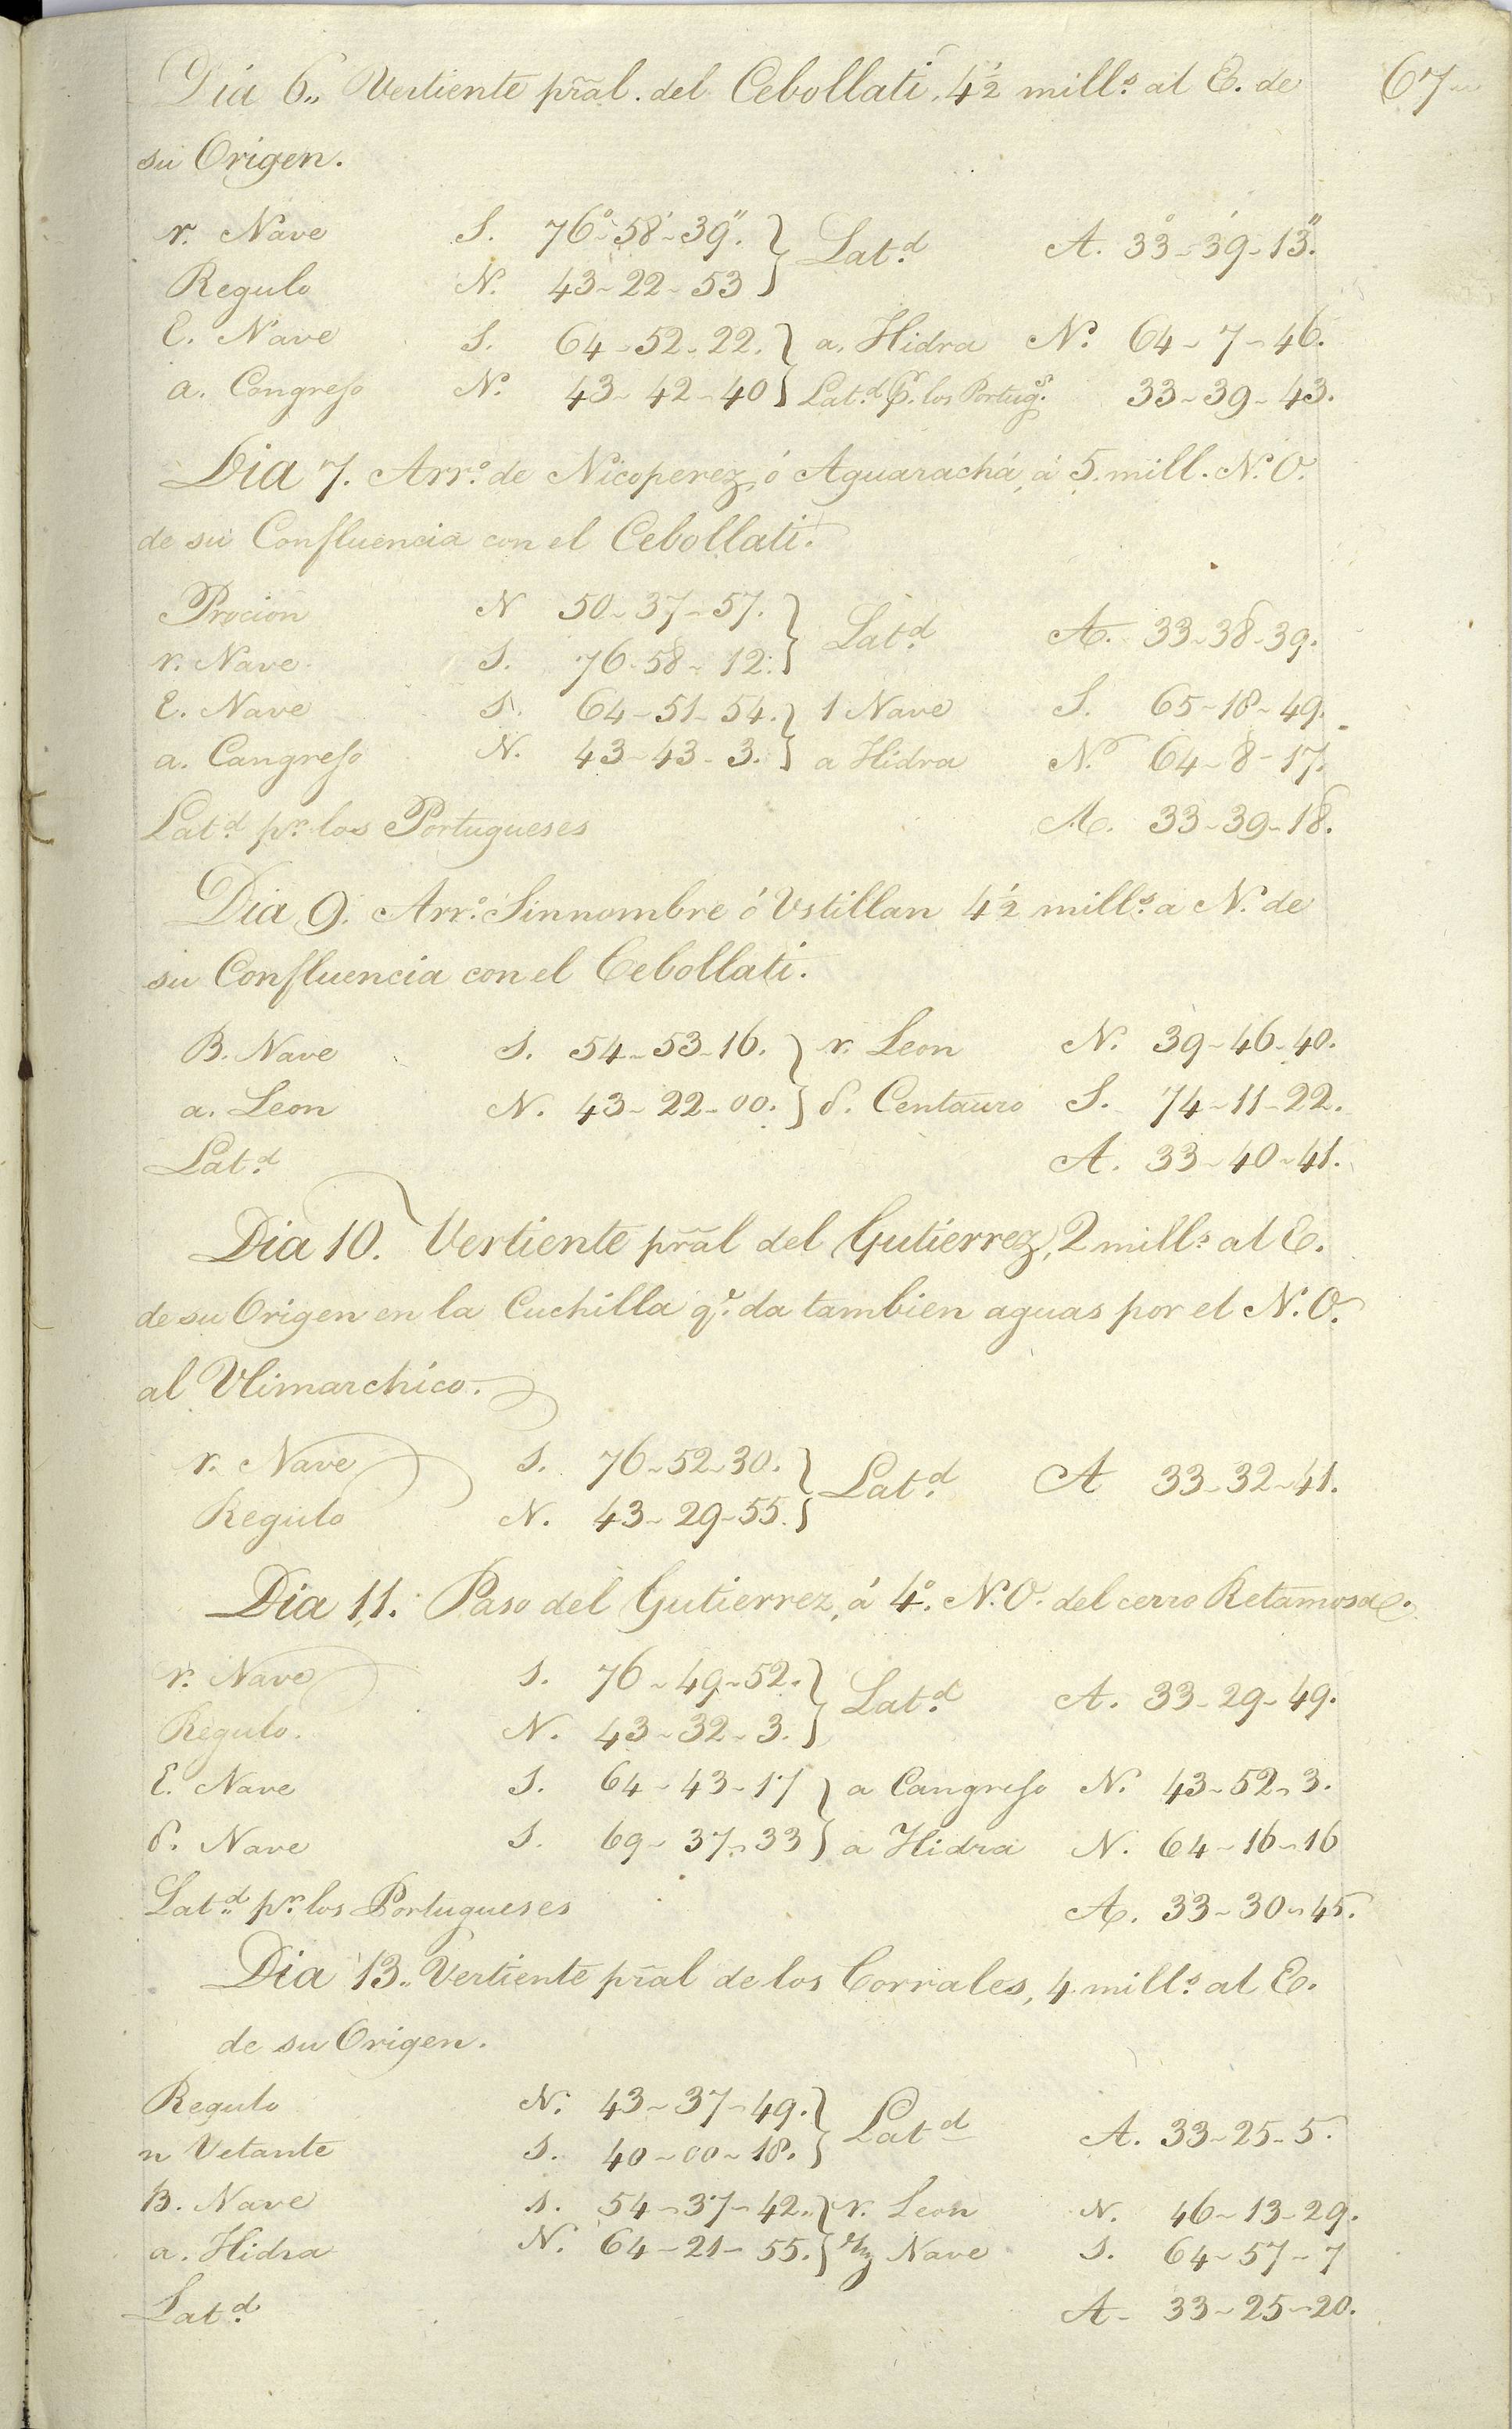 67
Dia 6,, Vertiente prãl. del Cebollatí, 4½ mill.s al E. de
su Origen.
r. Nave S. 76°~58'~39". } Lat.d A. 33°~39'~13".
Regulo N. 43~22~53
E. Nave S. 64~52~22. } a. Hidra N. 64~7~46.
a. Congreso N. 43~42~40 } Lat.d p.r los Portug.s 33~39~43.
Dia 7. Arr.o de Nicoperez, ó Aguarachá, á 5. mill. N.O.
de su Confluencia con el Cebollati.
Procion N 50~37~57. } Lat.d A. 33~38~39.
r. Nave S. 76~58~12.
E. Nave S. 64~51~54. } 1 Nave S. 65~18~49.
a. Cangreso N. 43~43~3. } a Hidra N. 64~8~17.
Lat.d p.r los Portugueses A. 33~39~18.
Dia 9. Arr.o Sinnombre ó Vstillan 4½ mill.s a N. de
su Confluencia con el Cebollati.
B. Nave S. 54~53~16. } r. Leon N. 39~46~40.
a. Leon N. 43~22~00. } δ. Centauro S. 74~11~22.
Lat.d A. 33~40~41.
Dia 10. Vertiente prãl del Gutierrez, 2 mill.s al E.
de su Origen en la Cuchilla q.e da tambien aguas por el N.O.
al Vlimarchico.
r. Nave S. 76~52~30. } Lat.d A 33~32~41.
Regulo N. 43~29~55.
Dia 11. Paso del Gutierrez, á 4.o N.O. del cerro Retamosa.
r. Nave S. 76~49~52. } Lat.d A. 33~29~49.
Regulo. N. 43~32~3.
E. Nave S. 64~43~17 } a Cangreso N. 43~52~3.
δ. Nave S. 69~37~33 } a Hidra N. 64~16~16
Lat.d p.r los Portugueses A. 33~30~45.
Dia 13,, Vertiente prãl de los Corrales, 4 mill.s al E.
de su Origen.
Regulo N. 43~37~49. } Lat.d A. 33~25~5.
n Vetante S. 40~00~18.
B. Nave S. 54~37~42. } r. Leon N. 46~13~29.
a. Hidra N. 64~21~55. } Nave S. 64~57~7
Lat.d A~ 33~25~20.